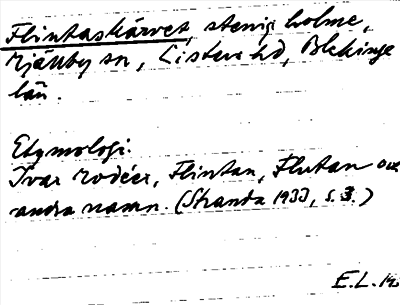 Flintaskärvet, stenig holme,
Mjällby sn, Listers hd, Blekinge
län.
Etymologi.
Ivar Modéer, Flintan, Flutan och
andra namn. (Stranda 1933, s. 3.)
E.L.